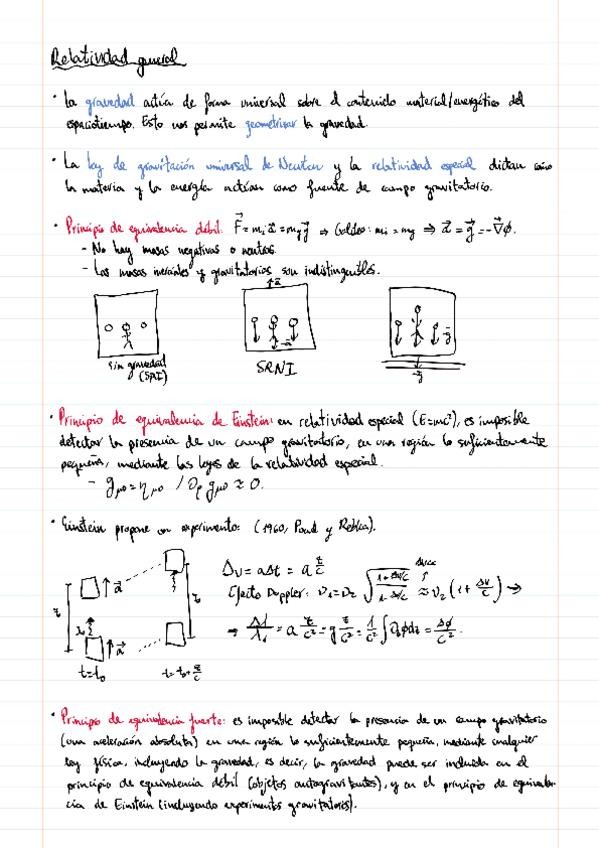 Relatividad general
· La gravedad actúa de forma universal sobre el contenido material/energético del
espaciotiempo. Esto nos permite geometrizar la gravedad.
· La ley de gravitación universal de Newton y la relatividad especial dictan cómo
la materia y la energía actúan como fuente de campo gravitatorio.
· Principio de equivalencia débil: F⃗ = mᵢa⃗ = m_g g⃗ ⇒ Galileo: mᵢ = m_g ⇒ a⃗ = g⃗ = -∇⃗ϕ.
- No hay masas negativas o neutras.
- Las masas inerciales y gravitatorias son indistinguibles.
↑a⃗
-a⃗
g⃗
sin gravedad
(SRI)
SRNI
g⃗
· Principio de equivalencia de Einstein: en relatividad especial (E=mc²), es imposible
detectar la presencia de un campo gravitatorio, en una región lo suficientemente
pequeña, mediante las leyes de la relatividad especial.
- g_μν = η_μν / ∂_ρ g_μν ≈ 0.
· Einstein propone un experimento: (1960, Pound y Rebka).
Δv = aΔt = a z/c
Δv≪c
Efecto Doppler: ν₁ = ν₂ √(1+Δv/c / 1-Δv/c) ≈ ν₂ (1 + Δv/c) →
→ Δλ/λ₁ = a z/c² = g z/c² = 1/c² ∫∂_zϕdz = Δϕ/c².
z
λ₀
a⃗
a⃗
t=t₀
t=t₀+z/c
· Principio de equivalencia fuerte: es imposible detectar la presencia de un campo gravitatorio
(una aceleración absoluta) en una región lo suficientemente pequeña, mediante cualquier
ley física, incluyendo la gravedad, es decir, la gravedad puede ser incluida en el
principio de equivalencia débil (objetos autogravitantes), y en el principio de equivalen-
cia de Einstein (incluyendo experimentos gravitatorios).